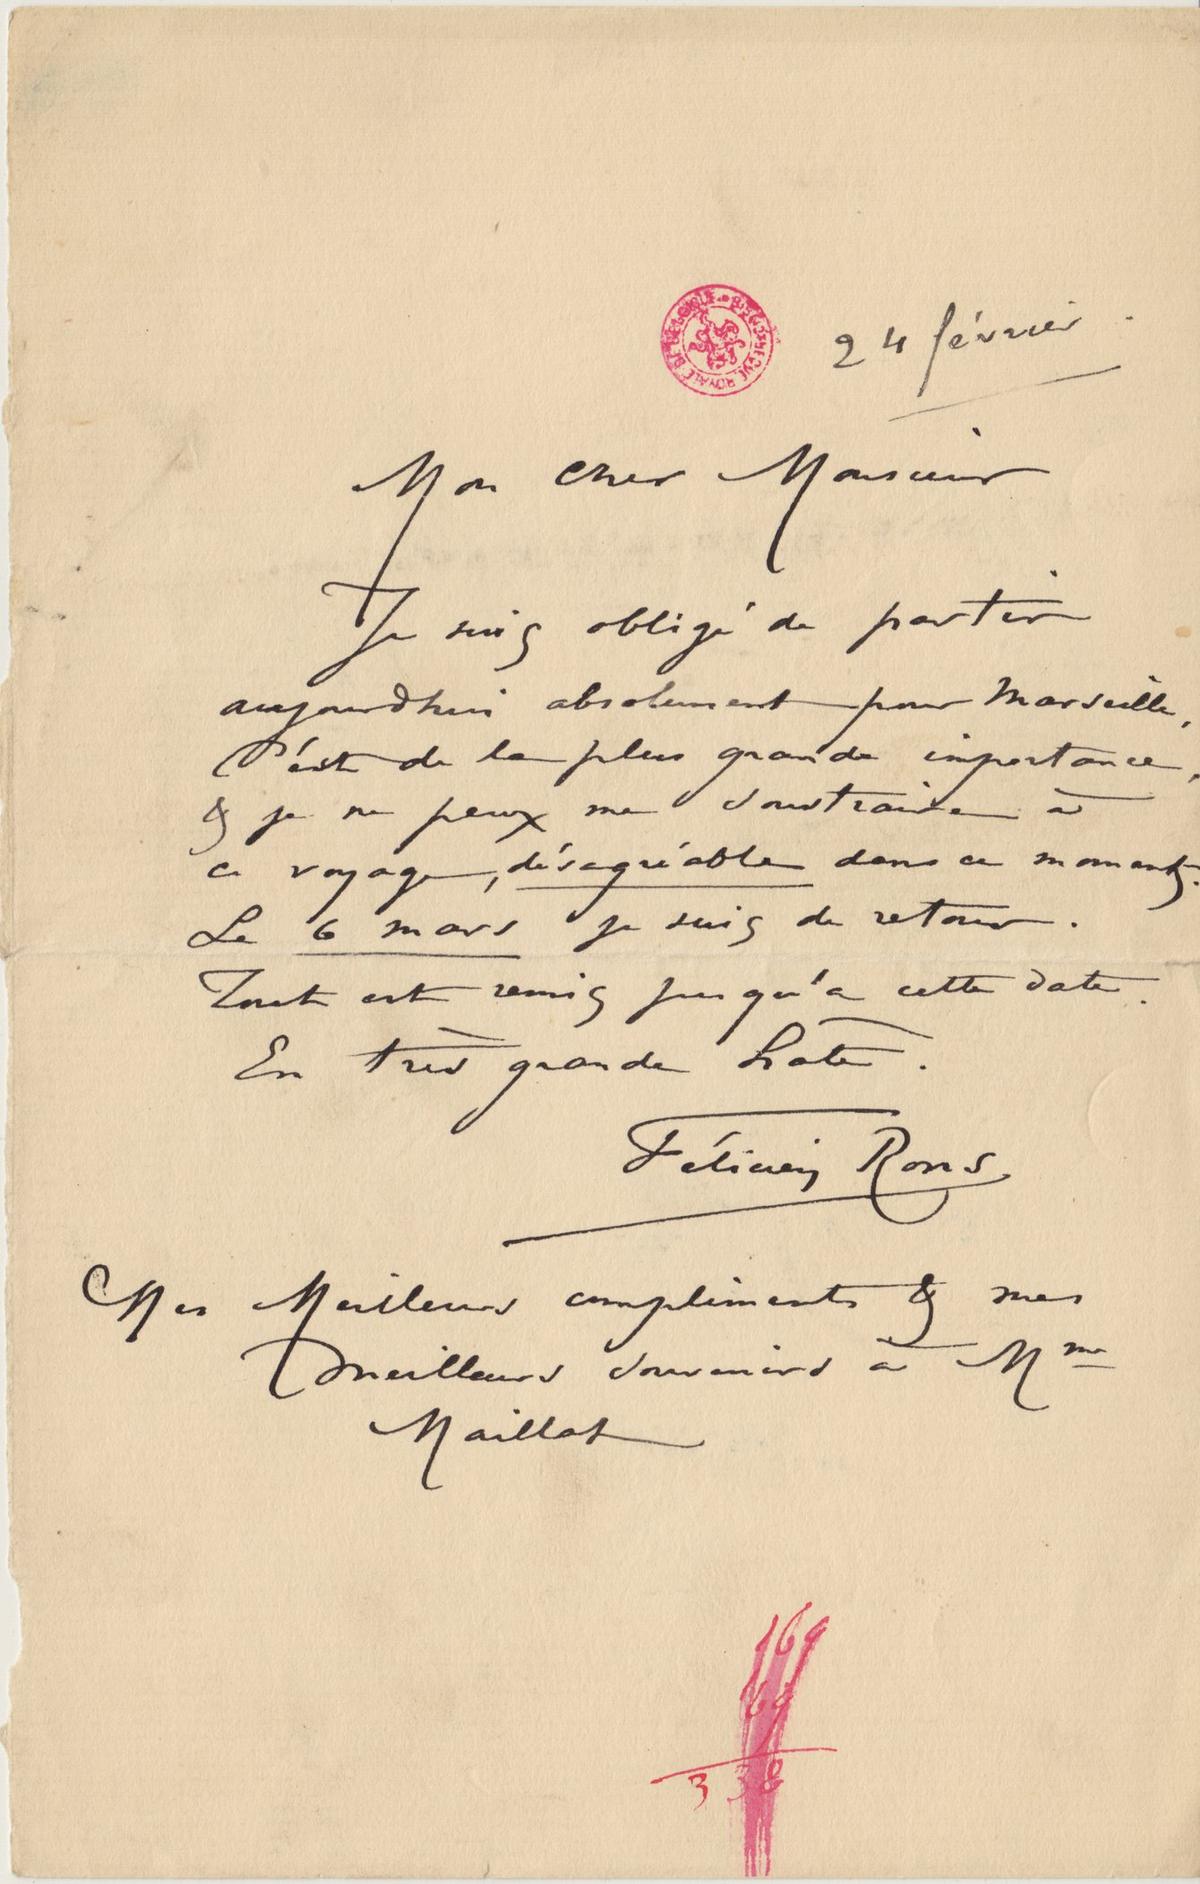 24 février.
BIBLIOTHÈQUE ROYALE DE BELGIQUE
Mon cher Monsieur
Je suis obligé de partir
aujourd'hui absolument pour Marseille,
C'est de la plus grande importance,
& je ne peux me soustraire à
ce voyage, désagréable dans ce moment.
Le 6 mars je suis de retour.
Tout est remis jusqu'à cette date.
En très grande hâte.
Félicien Rops
Mes Meilleurs compliments & mes
meilleurs souvenirs à Mme
Maillat
169
169
338